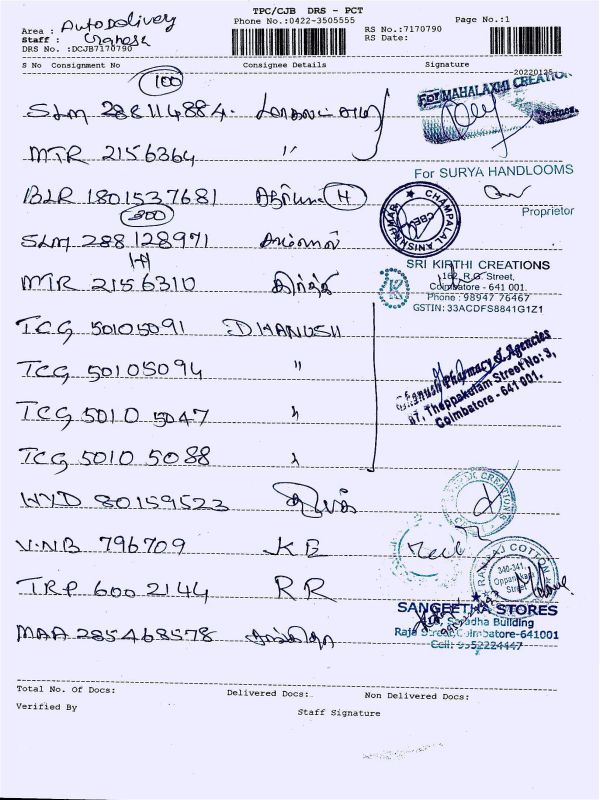 TPC/CJB DRS - PCT
Phone No.:0422-3505555
Page No.:1
Area : Autodelivery
Staff : Ganesh
RS No.:7170790
DRS No. :DCJB7170790
RS Date:
S No Consignment No Consignee Details Signature
20220125
100
SLM 288114884
For MAHALAXMI CREATION
Partner.
MTR 2156364 "
For SURYA HANDLOOMS
BLR 1801537681 H
Proprietor
CHAMPALAL ANISHKUMAR
CBE
200
SLM 288128971
H
SRI KIRTHI CREATIONS
162, R.G. Street,
Coimbatore - 641 001.
Phone : 98947 76467
GSTIN: 33ACDFS8841G1Z1
K
MTR 2156310 கீர்த்தி
TCG 50105091 DHANUSH
TCG 50105094 "
Dhanush Pharmacy & Agencies
87, Theppakulam Street No: 3,
Coimbatore - 641 001.
TCG 5010 5047 "
TCG 5010 5088 "
WYD 80159523 தீபக்
VNB 796709 KE
RAMRAJ COTTON
340-341
Oppanakara
Street
TRP 600 2144 RR
SANGEETHA STORES
Saradha Building
Raja Street, Coimbatore-641001
Cell: 9952224447
MAA 285468578 சங்கீதா
Total No. Of Docs: Delivered Docs: Non Delivered Docs:
Verified By Staff Signature